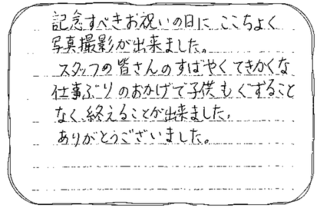 記念すべきお祝いの日に ここちよく
写真撮影が出来ました。
スタッフの皆さんのすばやくてきかくな
仕事ぶりのおかげで子供もくずること
なく、終えることが出来ました。
ありがとうございました。